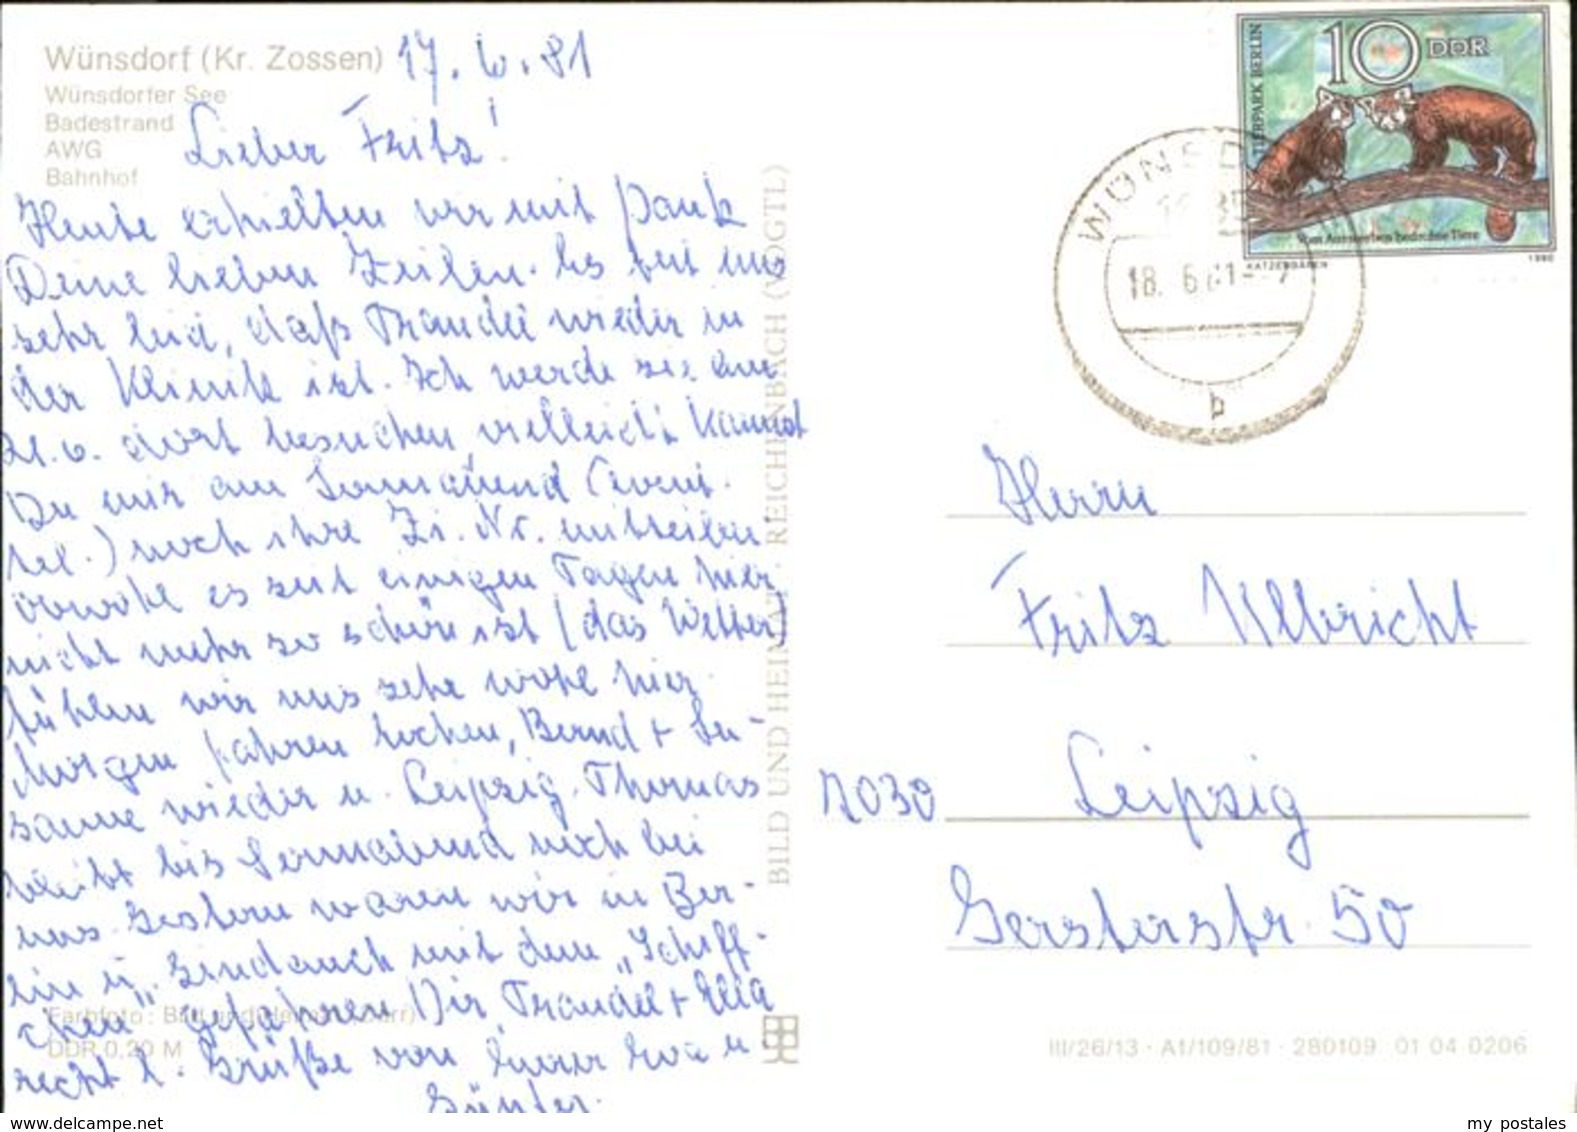 Wünsdorf (Kr. Zossen)
Wünsdorfer See
Badestrand
AWG
Bahnhof
17.6.81
Lieber Fritz!
Heute erhielten wir mit Dank
Deine lieben Zeilen. Es tut uns
sehr leid, daß Traudel wieder in
der Klinik ist. Ich werde sie am
21.6. dort besuchen, vielleicht kannst
Du mir am Sonnabend (event.
tel.) noch ihre Zi. Nr. mitteilen
obwohl es seit einigen Tagen hier
nicht mehr so schön ist (das Wetter)
fühlen wir uns sehr wohl hier.
Morgen fahren Jochen, Bernd + Su-
sanne wieder n. Leipzig. Thomas
bleibt bis Sonnabend noch bei
uns. Gestern waren wir in Ber-
lin u. sind auch mit dem „Schiff-
chen" gefahren. Dir, Traudel + Ella
recht l. Grüße von Eurer Eva u.
Günter.
Farbfoto: Bild und Heimat
DDR 0.20 M
BILD UND HEIMAT REICHENBACH (VOGTL)
TIERPARK BERLIN
10 DDR
Vom Aussterben bedrohte Tiere
KATZENBÄREN
1980
WÜNSD
18. 6
b
Herrn
Fritz Ulbricht
7030 Leipzig
Gersterstr. 50
III/26/13 · A1/109/81 · 280109 01 04 0206
www.delcampe.net
my postales